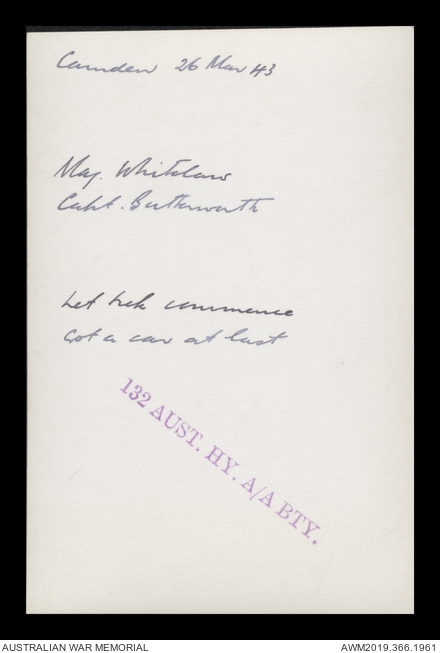 Camden 26 Mar 43
Maj. Whitelaw
Capt. Butterworth
Let trek commence
Got a car at last
132 AUST. HY. A/A BTY.
AUSTRALIAN WAR MEMORIAL
AWM2019.366.1961